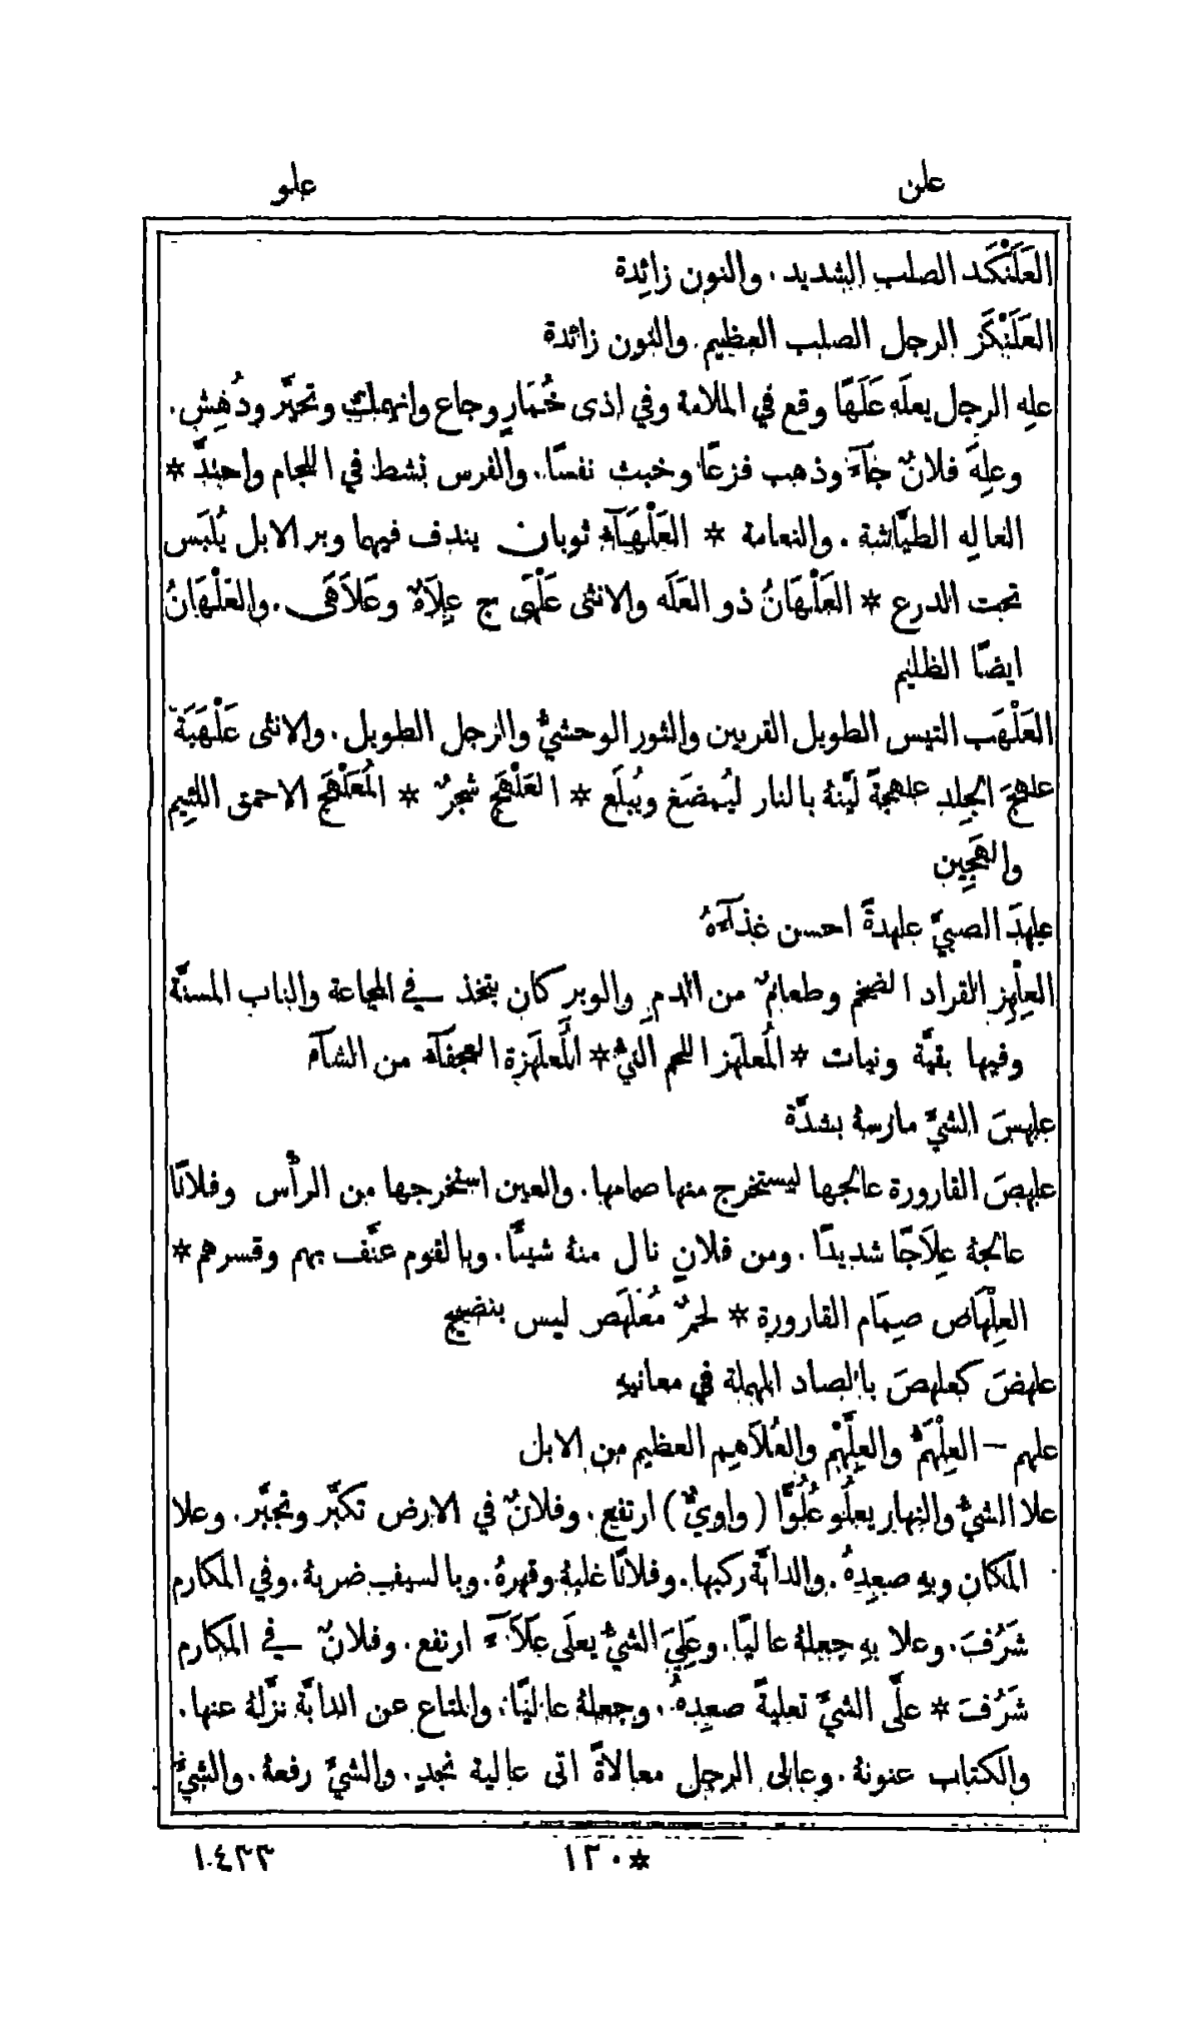 علن
علو
العَلَنْكَد الصلب الشديد . والنون زائِدة
العَلَنْكَز الرجل الصلب العظيم . والنون زائدة
علِه الرجل يعلَه عَلَهًا وقع في الملامة وفي اذى خُمَارٍ وجاع وانهمك وتحيَّر ودُهِش .
وعلِهَ فلانٌ جآءَ وذهب فزعًا وخبث نفسًا . والفرس نشط في اللجام واحتدَّ *
العاله الطيَّاشة . والنعامة * العَلْهَآء ثوبان يندف فيهما وبر الابل يُلبَس
تحت الدرع * العَلْهَانُ ذو العَلَه والانثى عَلْهَى ج عِلَاهٌ وعَلَاهَى . والعَلْهَانُ
ايضًا الظليم
العَلْهَب التيس الطويل القرنين والثور الوحشيُّ والرجل الطويل . والانثى عَلْهَبَة
علهجَ الجِلد علهجةً ليَّنهُ بالنار ليُمضَغ ويُبلَع * العَلْهَج شجرٌ * المُعَلْهَج الاحمق اللئيم
والهَجِين
علهدَ الصبيَّ علهدةً احسن غذآءَهُ
العِلْهِز القراد الضخم وطعامٌ من الدم والوبر كان يتخذ في المجاعة والناب المسنَّة
وفيها بقيَّة ونبات * المُعلهَز اللحم النيُّ * المُعلهَزة العجفآء من الشآء
علهسَ الشيَّ مارسهُ بشدَّة
علهصَ القارورة عالجها ليستخرج منها صمامها . والعين استخرجها من الرأْس وفلانًا
عالجهُ عِلاَجًا شديدًا . ومن فلانٍ نال منهُ شيئًا . وبالقوم عنَّف بهم وقسرهم *
العِلْهَاص صِمَام القارورة * لحمٌ مُعَلهَص ليس بنضيج
علهضَ كعلهصَ بالصاد المهملة في معانيهِ
علهم – العِلْهَمُّ والعِلَّهْم والعُلاَهِم العظيم من الابل
علا الشيُّ والنهار يعلُو عُلُوًّا (واويٌّ) ارتفع . وفلانٌ في الارض تكبَّر وتجبَّر . وعلا
المكان وبهِ صعِدهُ . والدابَّة ركبها . وفلانًا غلبهُ وقهرهُ . وبالسيف ضربهُ . وفي المكارم
شَرُفَ . وعلا بهِ جعلهُ عاليًا . وعَلِيَ الشيُّ يعلَى عَلَآءً ارتفع . وفلانٌ في المكارم
شَرُفَ * علَّى الشيَّ تعليةً صعِدهُ . وجعلهُ عاليًا . والمتاع عن الدابَّة نزَّلهُ عنها .
والكتاب عنونهُ . وعالى الرجل معالاةً اتى عالية نجدٍ . والشيَّ رفعهُ . والشيُّ
*١٢٠
١٤٣٣